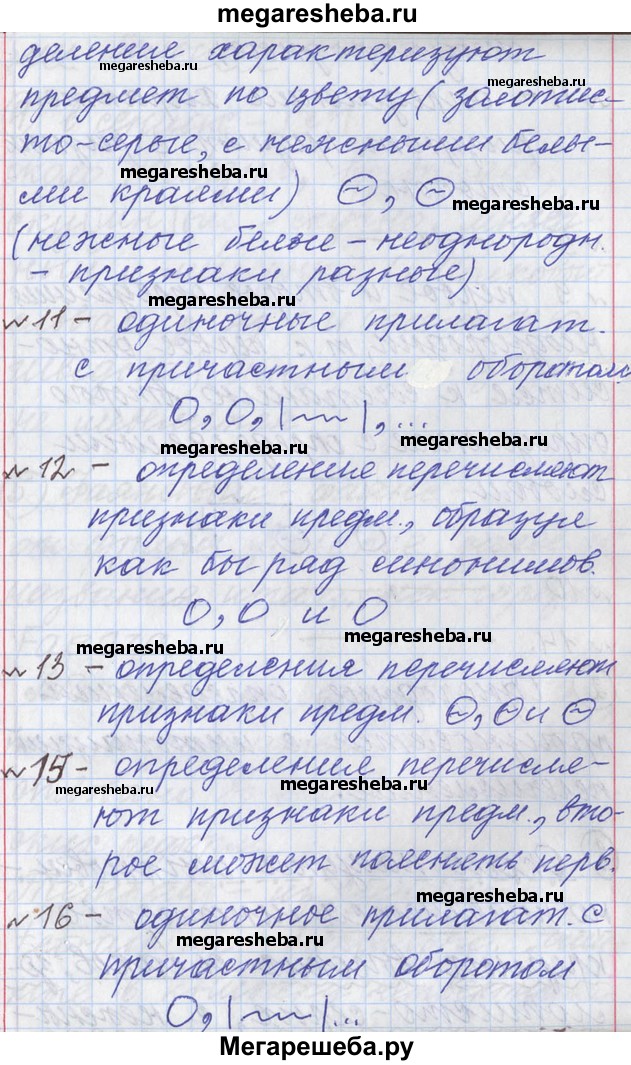 megaresheba.ru
деление характеризуют
megaresheba.ru
megaresheba.ru
предмет по цвету (золотис-
то-серые, с нежными белы-
megaresheba.ru
ми краями) ⊖, ⊖
megaresheba.ru
(нежные белые – неоднородн.
- признаки разные).
megaresheba.ru
№11 – одиночные прилагат.
megaresheba.ru
с причастным оборотом
О, О, |~~|, ...
megaresheba.ru
megaresheba.ru
№12 – определения перечисляют
признаки предм., образуя
как бы ряд синонимов.
О, О и О
megaresheba.ru
megaresheba.ru
№13 – определения перечисляют
признаки предм. ⊖, ⊖ и ⊖
№15 – определения перечисля-
megaresheba.ru
megaresheba.ru
ют признаки предм., вто-
рое может пояснять перв.
megaresheba.ru
№16 – одиночное прилагат. с
megaresheba.ru
причастным оборотом
О, |~~|...
megaresheba.ru
Мегарешеба.ру